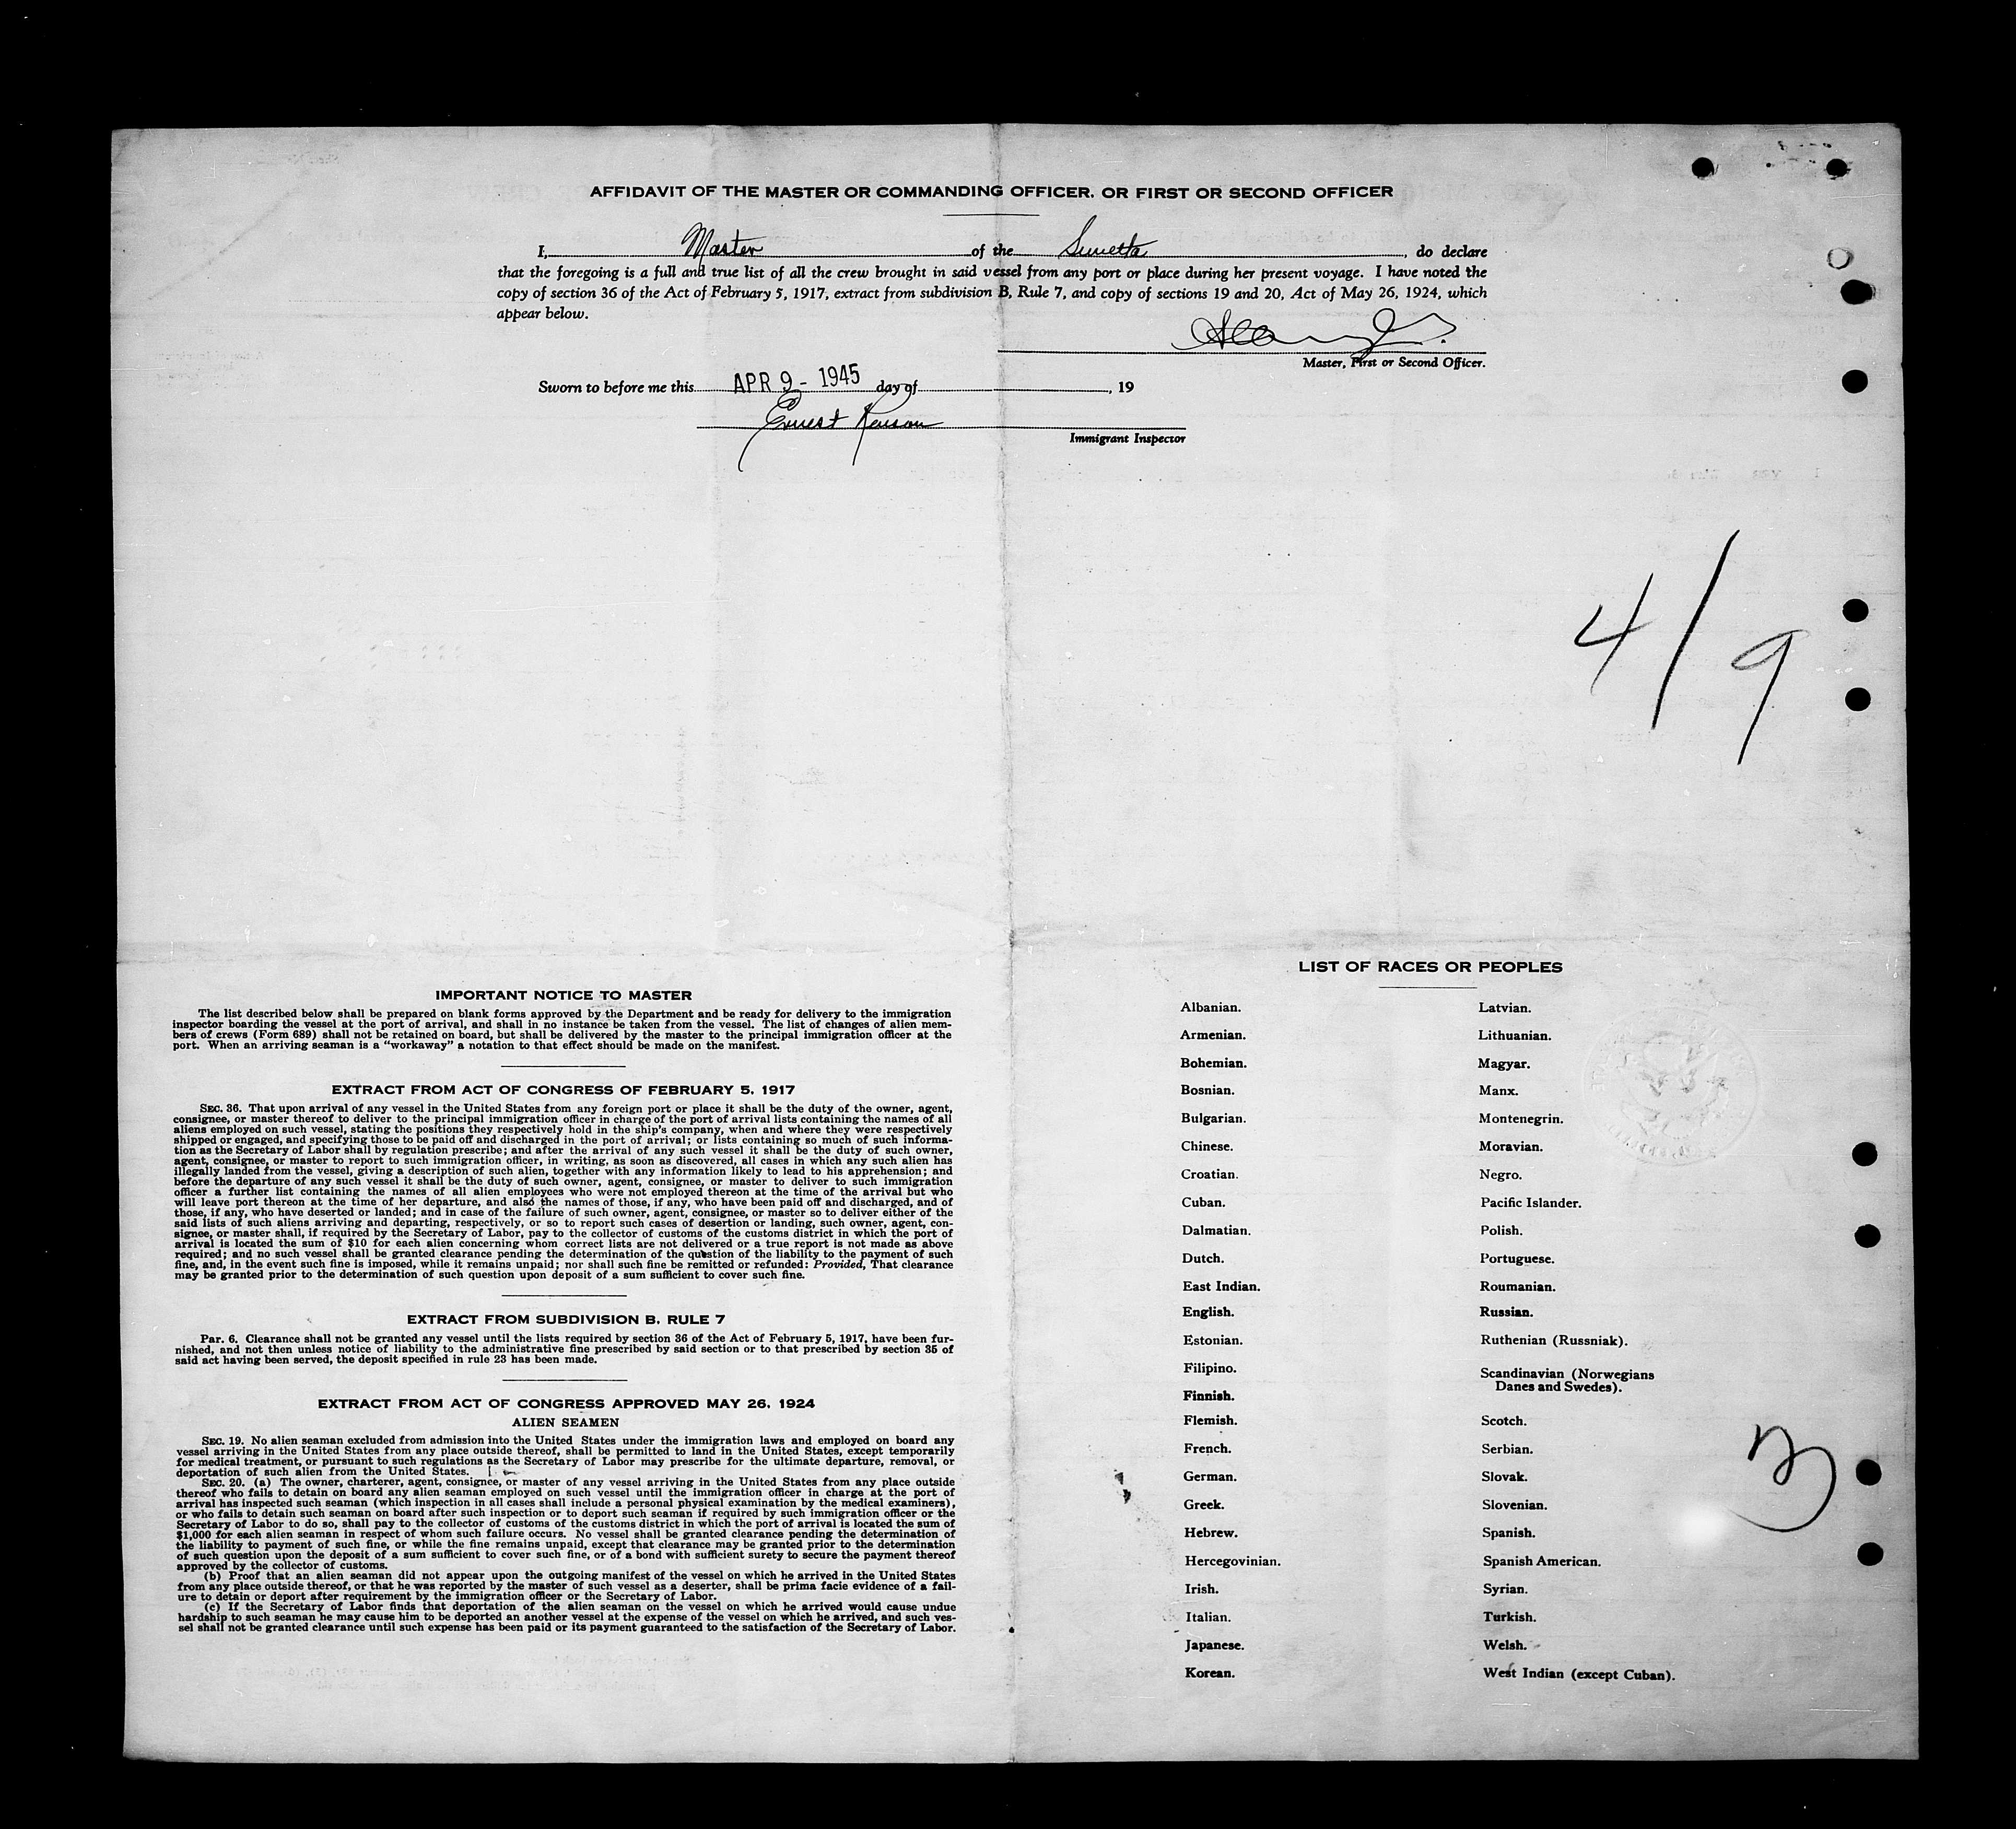 AFFIDAVIT OF THE MASTER OR COMMANDING OFFICER, OR FIRST OR SECOND OFFICER
I, Master of the Sunetta, do declare
that the foregoing is a full and true list of all the crew brought in said vessel from any port or place during her present voyage. I have noted the
copy of section 36 of the Act of February 5, 1917, extract from subdivision B, Rule 7, and copy of sections 19 and 20, Act of May 26, 1924, which
appear below.
Master, First or Second Officer.
Sworn to before me this APR 9 - 1945 day of , 19
Ernest
Immigrant Inspector
4/9
IMPORTANT NOTICE TO MASTER
The list described below shall be prepared on blank forms approved by the Department and be ready for delivery to the immigration
inspector boarding the vessel at the port of arrival, and shall in no instance be taken from the vessel. The list of changes of alien mem-
bers of crews (Form 689) shall not be retained on board, but shall be delivered by the master to the principal immigration officer at the
port. When an arriving seaman is a "workaway" a notation to that effect should be made on the manifest.
EXTRACT FROM ACT OF CONGRESS OF FEBRUARY 5, 1917
SEC. 36. That upon arrival of any vessel in the United States from any foreign port or place it shall be the duty of the owner, agent,
consignee, or master thereof to deliver to the principal immigration officer in charge of the port of arrival lists containing the names of all
aliens employed on such vessel, stating the positions they respectively hold in the ship's company, when and where they were respectively
shipped or engaged, and specifying those to be paid off and discharged in the port of arrival; or lists containing so much of such informa-
tion as the Secretary of Labor shall by regulation prescribe; and after the arrival of any such vessel it shall be the duty of such owner,
agent, consignee, or master to report to such immigration officer, in writing, as soon as discovered, all cases in which any such alien has
illegally landed from the vessel, giving a description of such alien, together with any information likely to lead to his apprehension; and
before the departure of any such vessel it shall be the duty of such owner, agent, consignee, or master to deliver to such immigration
officer a further list containing the names of all alien employees who were not employed thereon at the time of the arrival but who
will leave port thereon at the time of her departure, and also the names of those, if any, who have been paid off and discharged, and of
those, if any, who have deserted or landed; and in case of the failure of such owner, agent, consignee, or master so to deliver either of the
said lists of such aliens arriving and departing, respectively, or so to report such cases of desertion or landing, such owner, agent, con-
signee, or master shall, if required by the Secretary of Labor, pay to the collector of customs of the customs district in which the port of
arrival is located the sum of $10 for each alien concerning whom correct lists are not delivered or a true report is not made as above
required; and no such vessel shall be granted clearance pending the determination of the question of the liability to the payment of such
fine, and, in the event such fine is imposed, while it remains unpaid; nor shall such fine be remitted or refunded: Provided, That clearance
may be granted prior to the determination of such question upon deposit of a sum sufficient to cover such fine.
EXTRACT FROM SUBDIVISION B, RULE 7
Par. 6. Clearance shall not be granted any vessel until the lists required by section 36 of the Act of February 5, 1917, have been fur-
nished, and not then unless notice of liability to the administrative fine prescribed by said section or to that prescribed by section 35 of
said act having been served, the deposit specified in rule 23 has been made.
EXTRACT FROM ACT OF CONGRESS APPROVED MAY 26, 1924
ALIEN SEAMEN
SEC. 19. No alien seaman excluded from admission into the United States under the immigration laws and employed on board any
vessel arriving in the United States from any place outside thereof, shall be permitted to land in the United States, except temporarily
for medical treatment, or pursuant to such regulations as the Secretary of Labor may prescribe for the ultimate departure, removal, or
deportation of such alien from the United States.
SEC. 20. (a) The owner, charterer, agent, consignee, or master of any vessel arriving in the United States from any place outside
thereof who fails to detain on board any alien seaman employed on such vessel until the immigration officer in charge at the port of
arrival has inspected such seaman (which inspection in all cases shall include a personal physical examination by the medical examiners),
or who fails to detain such seaman on board after such inspection or to deport such seaman if required by such immigration officer or the
Secretary of Labor to do so, shall pay to the collector of customs of the customs district in which the port of arrival is located the sum of
$1,000 for each alien seaman in respect of whom such failure occurs. No vessel shall be granted clearance pending the determination of
the liability to payment of such fine, or while the fine remains unpaid, except that clearance may be granted prior to the determination
of such question upon the deposit of a sum sufficient to cover such fine, or of a bond with sufficient surety to secure the payment thereof
approved by the collector of customs.
(b) Proof that an alien seaman did not appear upon the outgoing manifest of the vessel on which he arrived in the United States
from any place outside thereof, or that he was reported by the master of such vessel as a deserter, shall be prima facie evidence of a fail-
ure to detain or deport after requirement by the immigration officer or the Secretary of Labor.
(c) If the Secretary of Labor finds that deportation of the alien seaman on the vessel on which he arrived would cause undue
hardship to such seaman he may cause him to be deported an another vessel at the expense of the vessel on which he arrived, and such ves-
sel shall not be granted clearance until such expense has been paid or its payment guaranteed to the satisfaction of the Secretary of Labor.
LIST OF RACES OR PEOPLES
Albanian.
Armenian.
Bohemian.
Bosnian.
Bulgarian.
Chinese.
Croatian.
Cuban.
Dalmatian.
Dutch.
East Indian.
English.
Estonian.
Filipino.
Finnish.
Flemish.
French.
German.
Greek.
Hebrew.
Hercegovinian.
Irish.
Italian.
Japanese.
Korean.
Latvian.
Lithuanian.
Magyar.
Manx.
Montenegrin.
Moravian.
Negro.
Pacific Islander.
Polish.
Portuguese.
Roumanian.
Russian.
Ruthenian (Russniak).
Scandinavian (Norwegians
Danes and Swedes).
Scotch.
Serbian.
Slovak.
Slovenian.
Spanish.
Spanish American.
Syrian.
Turkish.
Welsh.
West Indian (except Cuban).